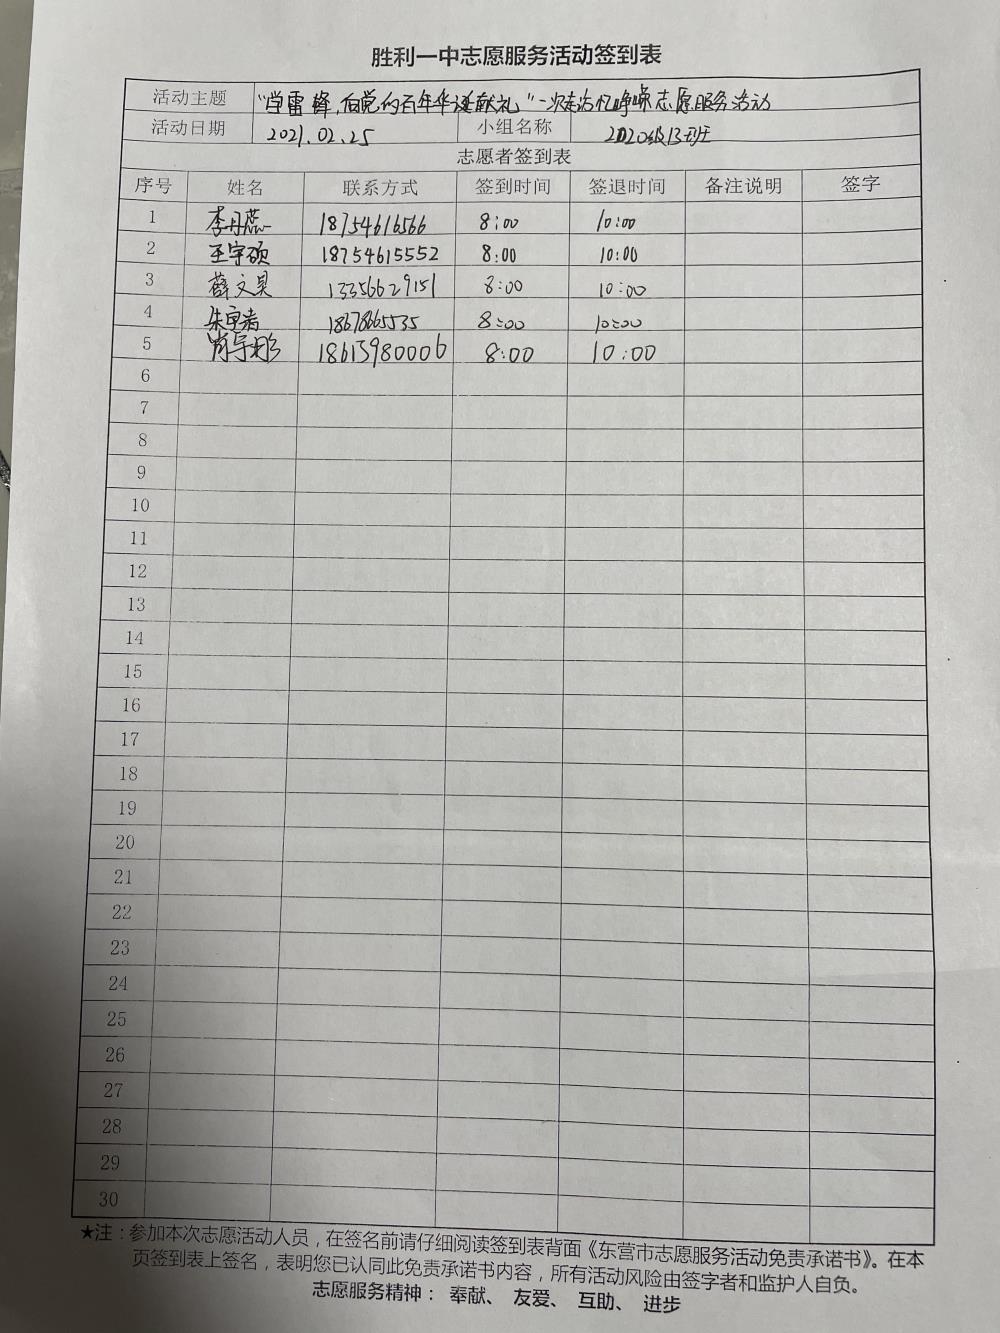 胜利一中志愿服务活动签到表
活动主题 "学雷锋,向党的百年华诞献礼"一次走访忆峥嵘志愿服务活动
活动日期 2021.02.25 小组名称 2020级13班
志愿者签到表
序号 姓名 联系方式 签到时间 签退时间 备注说明 签字
1 李丹蕊 18754616566 8:00 10:00
2 王宇硕 18754615552 8:00 10:00
3 薛文昊 13356629151 8:00 10:00
4 18678665535 8:00 10:00
5 肖宇彤 18613980006 8:00 10:00
6
7
8
9
10
11
12
13
14
15
16
17
18
19
20
21
22
23
24
25
26
27
28
29
30
★注:参加本次志愿活动人员,在签名前请仔细阅读签到表背面《东营市志愿服务活动免责承诺书》。在本
页签到表上签名,表明您已认同此免责承诺书内容,所有活动风险由签字者和监护人自负。
志愿服务精神: 奉献、 友爱、 互助、 进步